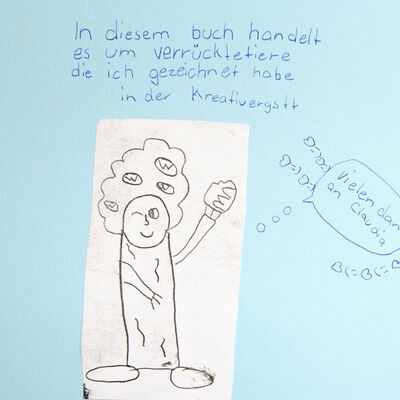 In diesem buch handelt
es um verrücktetiere
die ich gezeichnet habe
in der Kreativergstt
Vielen dan
an Claudia